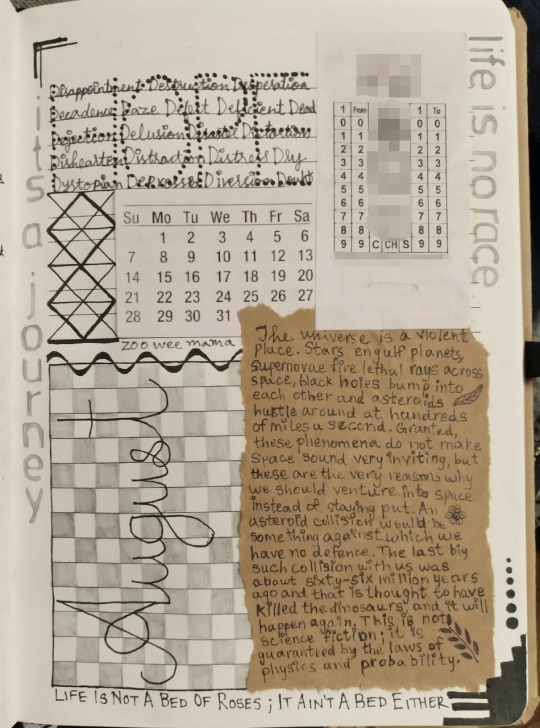 life is no race
it's a journey
Disappointment Destruction Desperation
Decadence Daze Defeit Deficient Dead
Dejection Delusion Disaster Distortion
Dishearten Distraction Distress Dry
Dystopian Depressed Diversion Doubt
Su Mo Tu We Th Fr Sa
1 2 3 4 5 6
7 8 9 10 11 12 13
14 15 16 17 18 19 20
21 22 23 24 25 26 27
28 29 30 31
zoo wee mama
1 From 1 To
0 0 0 0
1 1 1 1
2 2 2 2
3 3 3 3
4 4 4 4
5 5 5 5
6 6 6 6
7 7 7 7
8 8 8 8
9 9 C CH S 9 9
August
The universe is a violent
place. Stars engulf planets,
supernovae fire lethal rays across
space, black holes bump into
each other and asteroids
hustle around at hundreds
of miles a second. Granted,
these phenomena do not make
space sound very inviting, but
these are the very reasons why
we should venture into space
instead of staying put. An
asteroid collision would be
something against which we
have no defence. The last big
such collision with us was
about sixty-six million years
ago and that is thought to have
killed the dinosaurs, and it will
happen again. This is not
science fiction; it is
guaranteed by the laws of
physics and probability.
LIFE IS NOT A BED OF ROSES ; IT AIN'T A BED EITHER